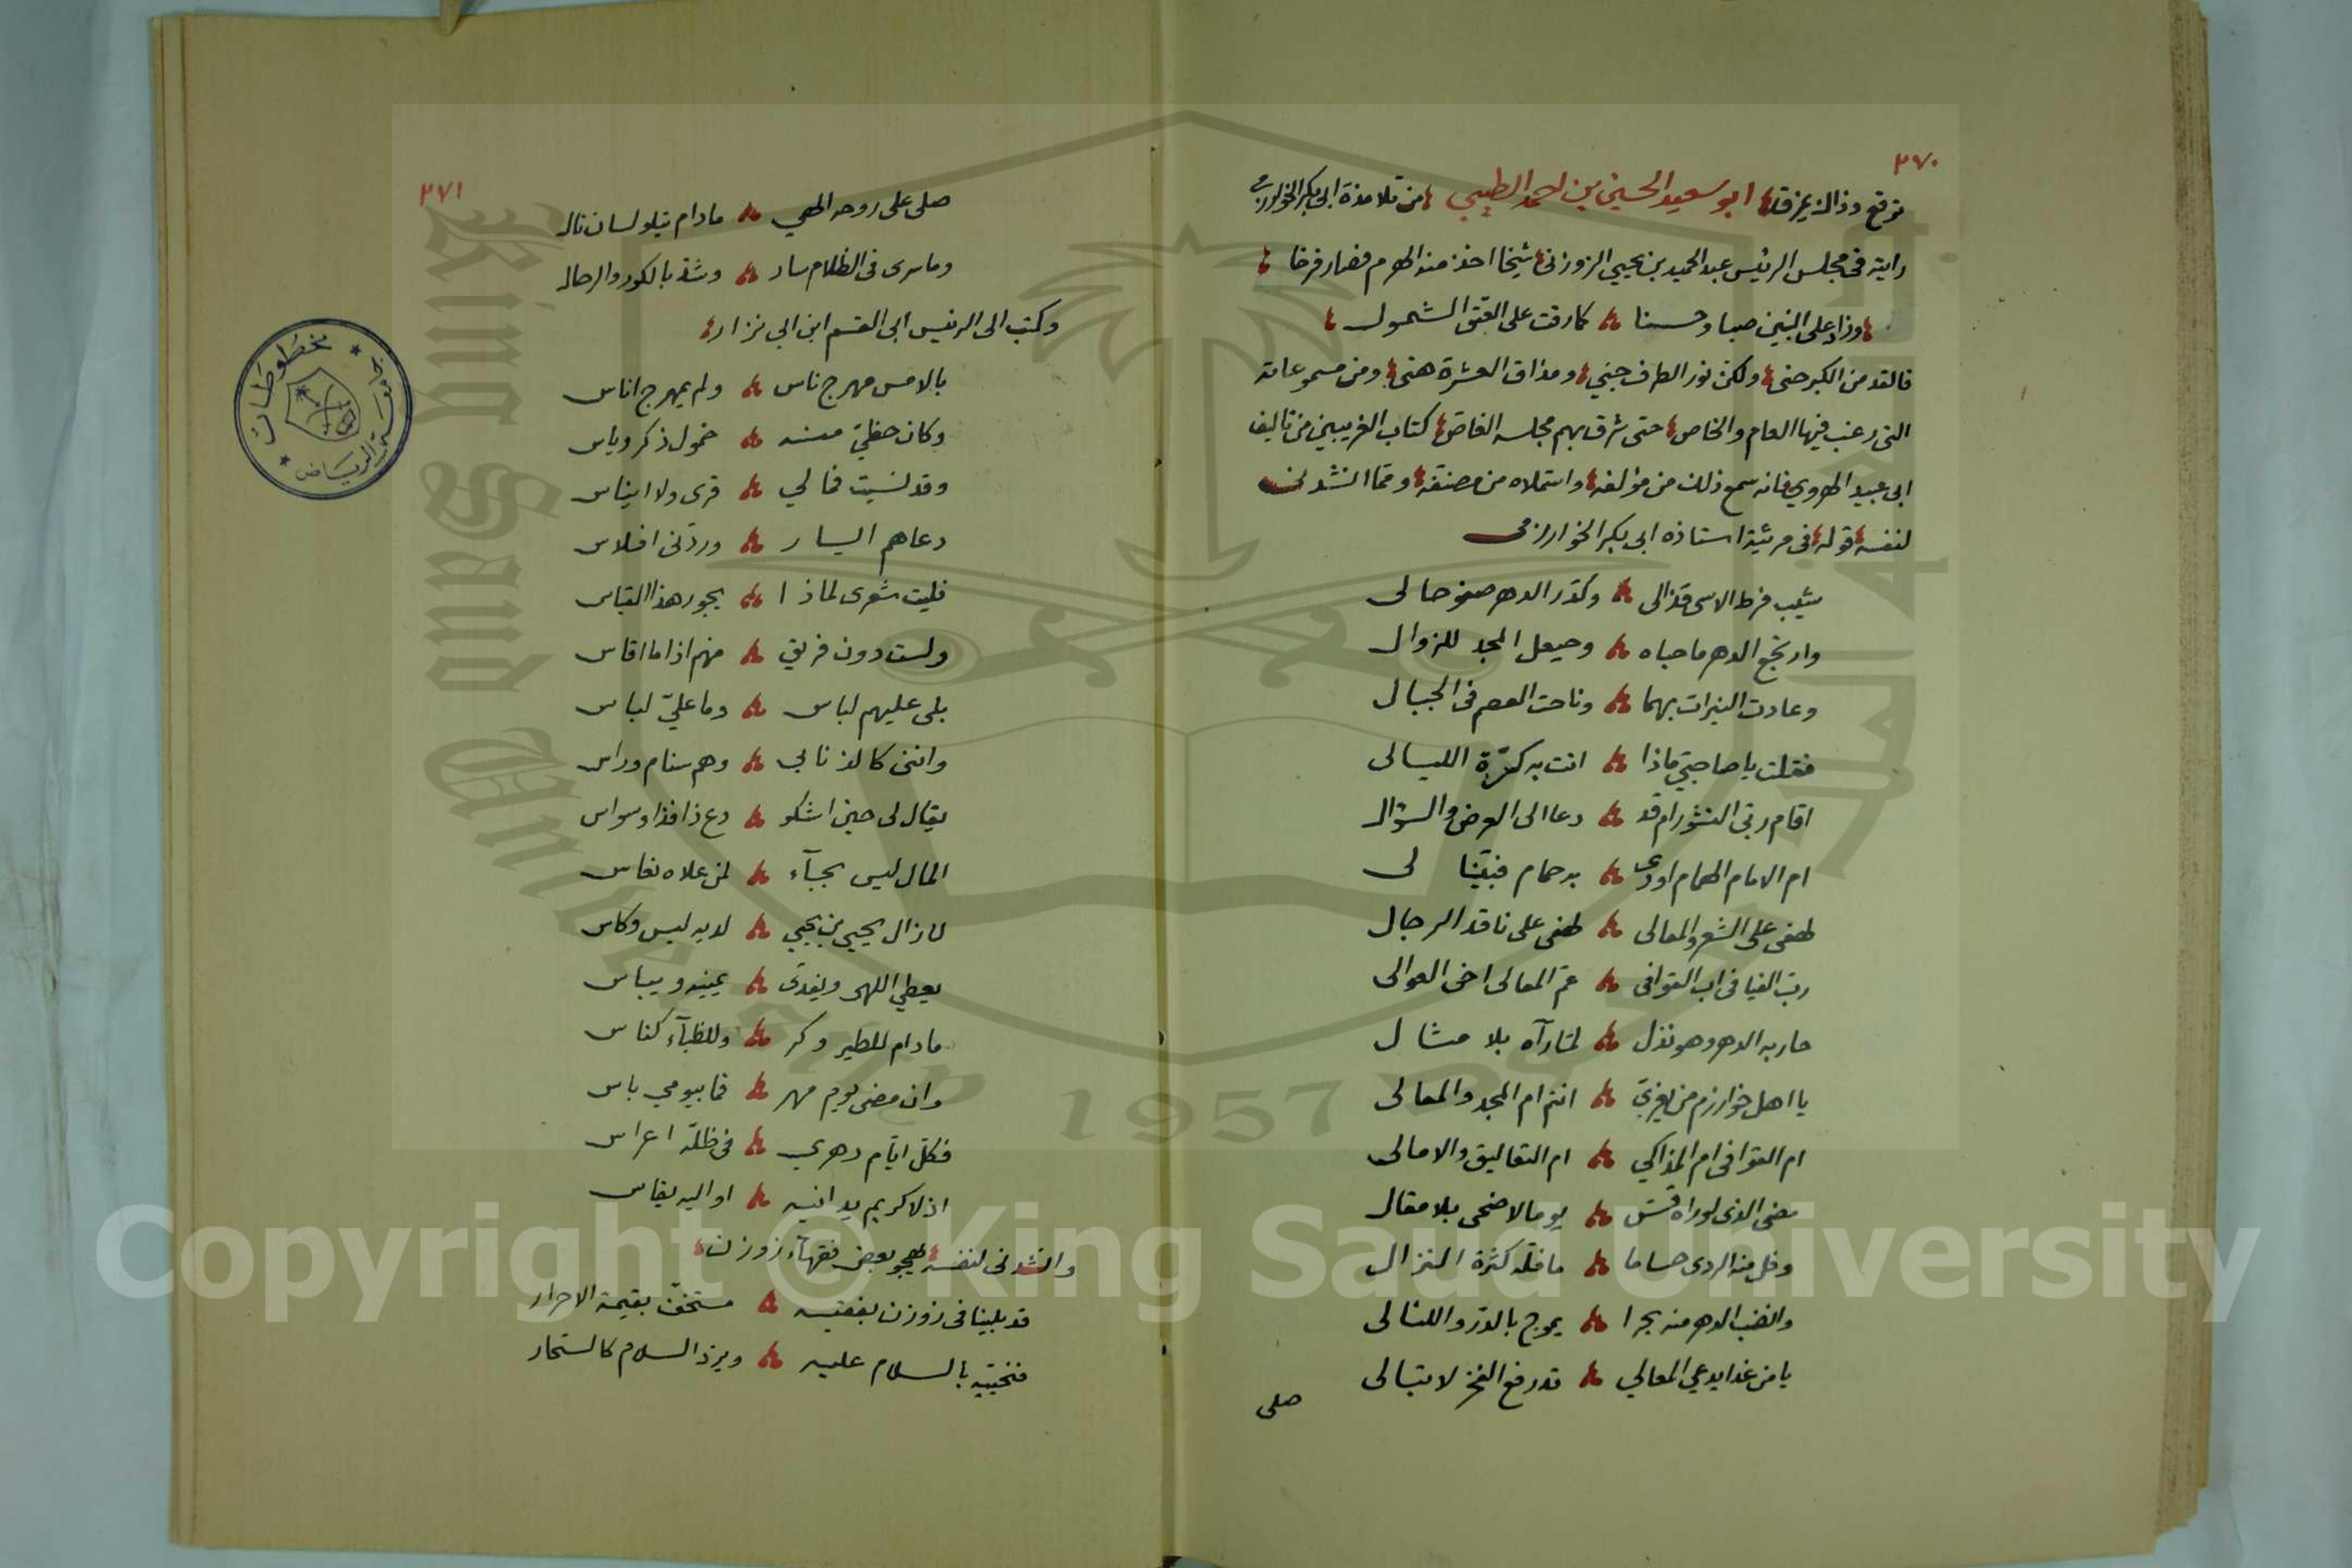 ٣٧٠
توقع وذاك يمزق ابو سعيد الحسين بن احمد الطبيبي من تلامذة ابى بكر الخوارزمي
رايته فى مجلس الرئيس عبد الحميد بن يحيي الزوزنى شيخا اخذ منه الهرم فصار فرخا
وزاد على السنين صبا وحسنا كما رقت على العتق الشمول
فالقد من الكبر حنى ولكن نور الطرف جني ومذاق العشرة هنى ومن مسموعاته
التى رغب فيها العام والخاص حتى شرق بهم مجلسه الغاص كتاب الغريبين من تاليف
ابى عبيد الهروي فانه سمع ذلك من مؤلفه واستملاه من مصنفه ومما انشدنى
لنفسه قوله فى مرثية استاذه ابى بكر الخوارزمى
شيب فرط الاسى قذالى وكدر الدهر صفو حالى
وارتجع الدهر ما حباه وحيعل المجد للزوال
وعادت النيرات بهما وناحت العصم فى الجبال
فقلت يا صاحبي ماذا اتت به كرة الليالى
اقام ربى النشور ام قد دعا الى العرض والسؤال
ام الامام الهمام اودى به حمام فبينا لى
لهفى على الشعر والمعالى لهفى على ناقد الرجال
رب الفيافى اب القوافى عم المعالى اخى العوالى
حاربه الدهر وهو نذل لما رآه بلا مثال
يا اهل خوارزم من يعزي انتم ام المجد والمعالى
ام القوافى ام المذاكي ام التعاليق والامالى
مضى الذى لو راه قس يوما لاضحى بلا مقال
وفل منه الردى حساما ما فله كثرة النزال
وانضب الدهر منه بحرا يموج بالدر واللئالى
يا من غدا يدعي المعالي قد رفع الفخر لا تبالى
صلى
٣٧١
صلى على روحه الهي مادام يتلو لسان تال
وما سرى فى الظلام سار وشد بالكور والرحال
وكتب الى الرئيس ابى القسم ابن ابي نزار
بالامس مهرج ناس ولم يمهرج اناس
وكان حظي منه خمول ذكر وياس
وقد نسيت فما لي قرى ولا ايناس
دعاهم اليسار وردنى افلاس
فليت شعرى لماذا يجور هذا القياس
ولست دون فريق منهم اذا ما اقاس
بلى عليهم لباس وما علي لباس
واننى كالذنابي وهم سنام وراس
يقال لى حين اشكو دع ذا فذا وسواس
المال ليس بجآء لمن علاه نعاس
لا زال يحيي بن يحيي لديه ليس وكاس
يعطي اللهى ويغدى يمينه ويباس
مادام للطير وكر وللظبآء كناس
وان مضى يوم مهر فما بيومي باس
فكل ايام دهري فى ظله اعراس
اذ لا كريم يدانيه او اليه يقاس
وانشدنى لنفسه يهجو بعض فقهآء زوزن
قد بلينا فى زوزن بفقيه مستخف بقيمة الاحرار
فنحييه بالسلام عليه ويرد السلام كالستحار
مخطوطات
جامعة الرياض
Copyright © King Saud University
King Saud University
1957